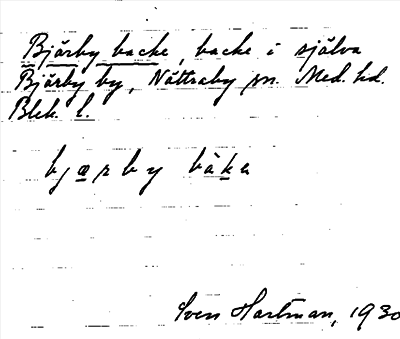 Bjärby backe, backe i själva
Bjärby by, Nättraby sn. Med. hd.
Blek. l.
bjærby bàka
Sven Hartman, 1930